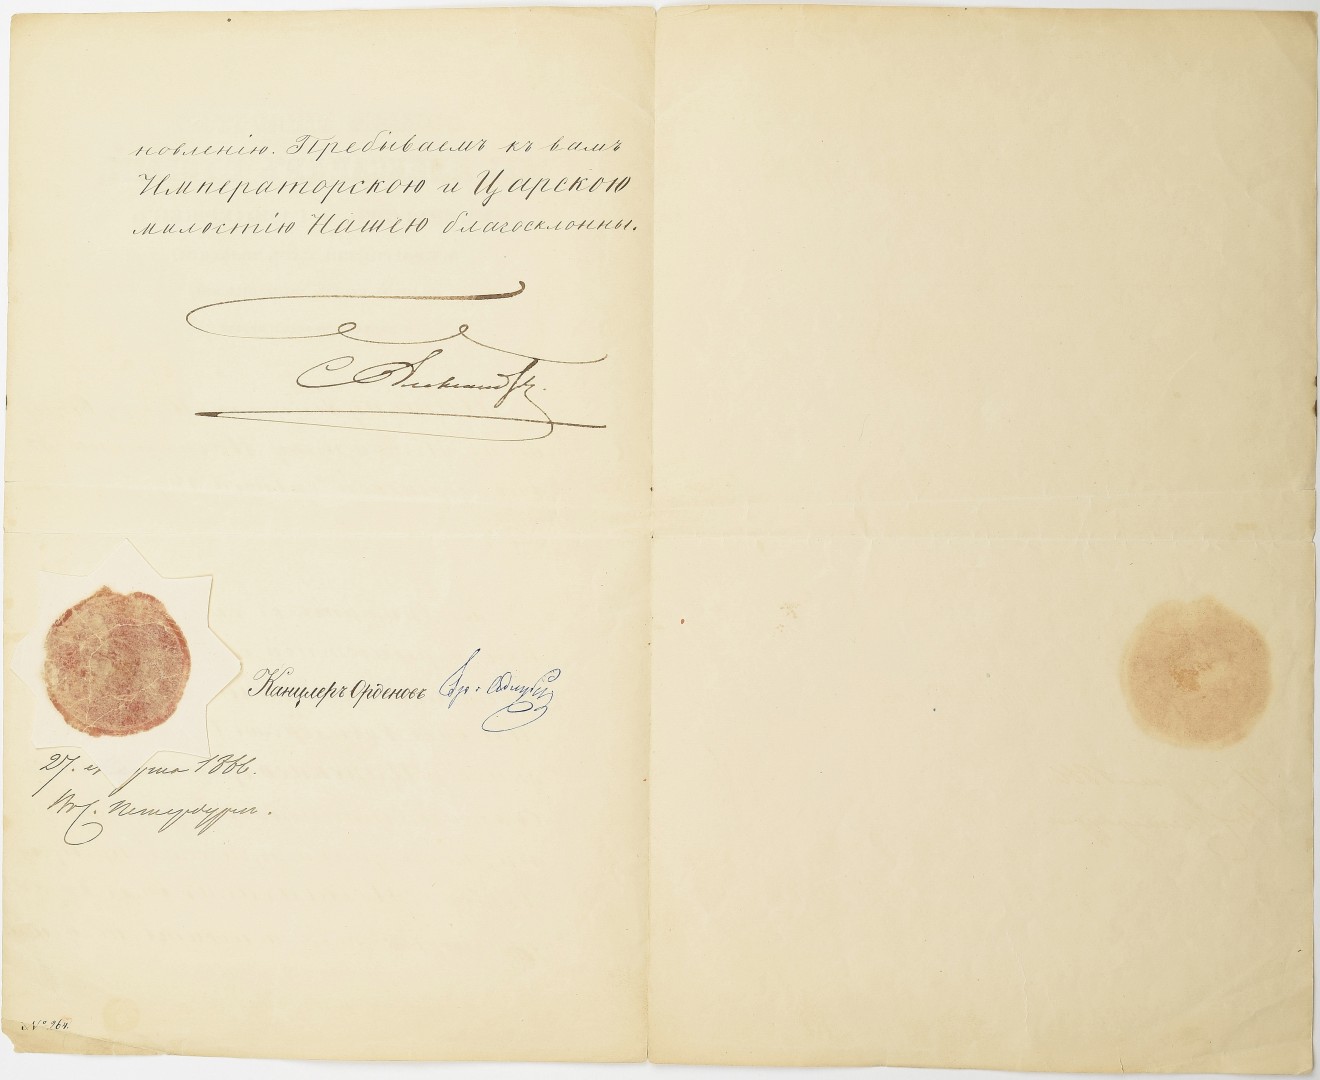 новленію. Пребываемъ къ вамъ
Императорскою и Царскою
милостію Нашею благосклонны.
Александръ.
Канцлеръ Орденовъ Гр:
27. 1866.
Въ С. Петербургѣ.
№ 264.